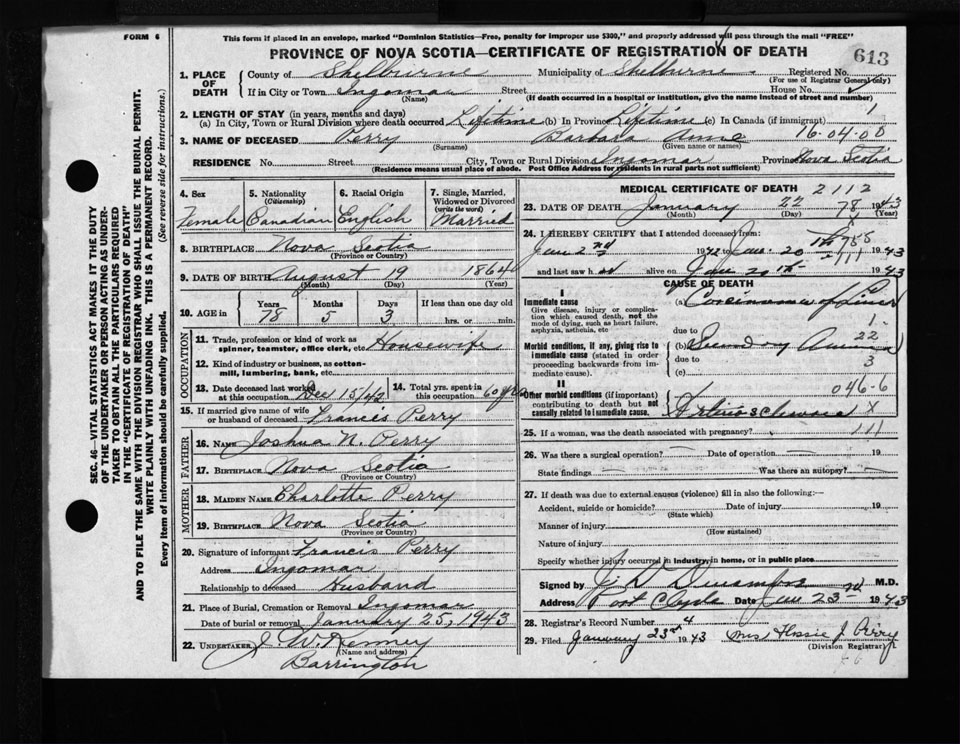 FORM 6
This form if placed in an envelope, marked "Dominion Statistics—Free, penalty for improper use $300," and properly addressed will pass through the mail "FREE"
PROVINCE OF NOVA SCOTIA—CERTIFICATE OF REGISTRATION OF DEATH
613
1. PLACE OF DEATH
County of Shelburne Municipality of Shelburne Registered No.
(For use of Registrar General only)
If in City or Town Ingomar Street House No.
(Name) (If death occurred in a hospital or institution, give the name instead of street and number)
2. LENGTH OF STAY (in years, months and days) 1
(a) In City, Town or Rural Division where death occurred Lifetime (b) In Province Lifetime (c) In Canada (if immigrant)
16-04-00
3. NAME OF DECEASED Perry Barbara Anne
(Surname) (Given name or names)
RESIDENCE No. Street City, Town or Rural Division Ingomar Province Nova Scotia
(Residence means usual place of abode. Post Office Address for residents in rural parts not sufficient)
4. Sex
Female
5. Nationality
(Citizenship)
Canadian
6. Racial Origin
English
7. Single, Married, Widowed or Divorced
(write the word)
Married
8. BIRTHPLACE Nova Scotia
(Province or Country)
9. DATE OF BIRTH August 19 1864
(Month) (Day) (Year)
10. AGE in Years Months Days If less than one day old
78 5 3 hrs. or min.
OCCUPATION
11. Trade, profession or kind of work as spinner, teamster, office clerk, etc. Housewife
12. Kind of industry or business, as cotton-mill, lumbering, bank, etc.
13. Date deceased last worked at this occupation Dec 15/42
14. Total yrs. spent in this occupation 60 yrs
15. If married give name of wife or husband of deceased Francis Perry
FATHER
16. NAME Joshua N. Perry
17. BIRTHPLACE Nova Scotia
(Province or Country)
MOTHER
18. MAIDEN NAME Charlotte Perry
19. BIRTHPLACE Nova Scotia
(Province or Country)
20. Signature of informant Francis Perry
Address Ingomar
Relationship to deceased Husband
21. Place of Burial, Cremation or Removal Ingomar
Date of burial or removal January 25, 1943
22. UNDERTAKER J. W. Kenney
(Name and address)
Barrington
MEDICAL CERTIFICATE OF DEATH 2112
23. DATE OF DEATH January 22 1943
(Month) (Day) (Year)
78
24. I HEREBY CERTIFY that I attended deceased from:
Jan 2nd 1942 Jan. 20 1943
and last saw h alive on Jan 20th 1943
CAUSE OF DEATH
I
Immediate cause
Give disease, injury or complication which caused death, not the mode of dying, such as heart failure, asphyxia, asthenia, etc
(a) Carcinoma of Liver
due to 1
Morbid conditions, if any, giving rise to immediate cause (stated in order proceeding backwards from immediate cause).
(b) Secondary 22
due to 3
(c)
II
Other morbid conditions (if important) contributing to death but not causally related to immediate cause.
046-6
Arteriosclerosis X
25. If a woman, was the death associated with pregnancy? 111
26. Was there a surgical operation? Date of operation 19
State findings Was there an autopsy?
27. If death was due to external causes (violence) fill in also the following:—
Accident, suicide or homicide? Date of injury 19
(State which)
Manner of injury
(How sustained)
Nature of injury
Specify whether injury occurred in industry, in home, or in public place
Signed by M.D.
Address Port Clyde Date Jan 23rd 1943
28. Registrar's Record Number 4
29. Filed January 23rd 1943 Mrs Flossie J. Perry
(Division Registrar)
SEC. 46—VITAL STATISTICS ACT MAKES IT THE DUTY
OF THE UNDERTAKER OR PERSON ACTING AS UNDER-
TAKER TO OBTAIN ALL THE PARTICULARS REQUIRED
IN THE "CERTIFICATE OF REGISTRATION OF DEATH"
AND TO FILE THE SAME WITH THE DIVISION REGISTRAR WHO SHALL ISSUE THE BURIAL PERMIT.
WRITE PLAINLY WITH UNFADING INK. THIS IS A PERMANENT RECORD.
Every item of information should be carefully supplied. (See reverse side for instructions.)